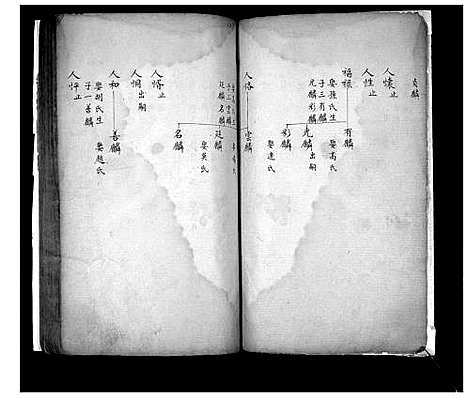 貞麟
人懷止
人性止
福祿
娶孫氏生
子三有麟
兄麟彩麟
有麟
娶高氏
光麟
出嗣
彩麟
娶連氏
人恪
雲麟
子三雲麟
廷麟名麟
廷麟
娶吳氏
名麟
人惰止
人惆
出嗣
人和
娶胡氏生
子一善麟
善麟
娶趙氏
人怦止